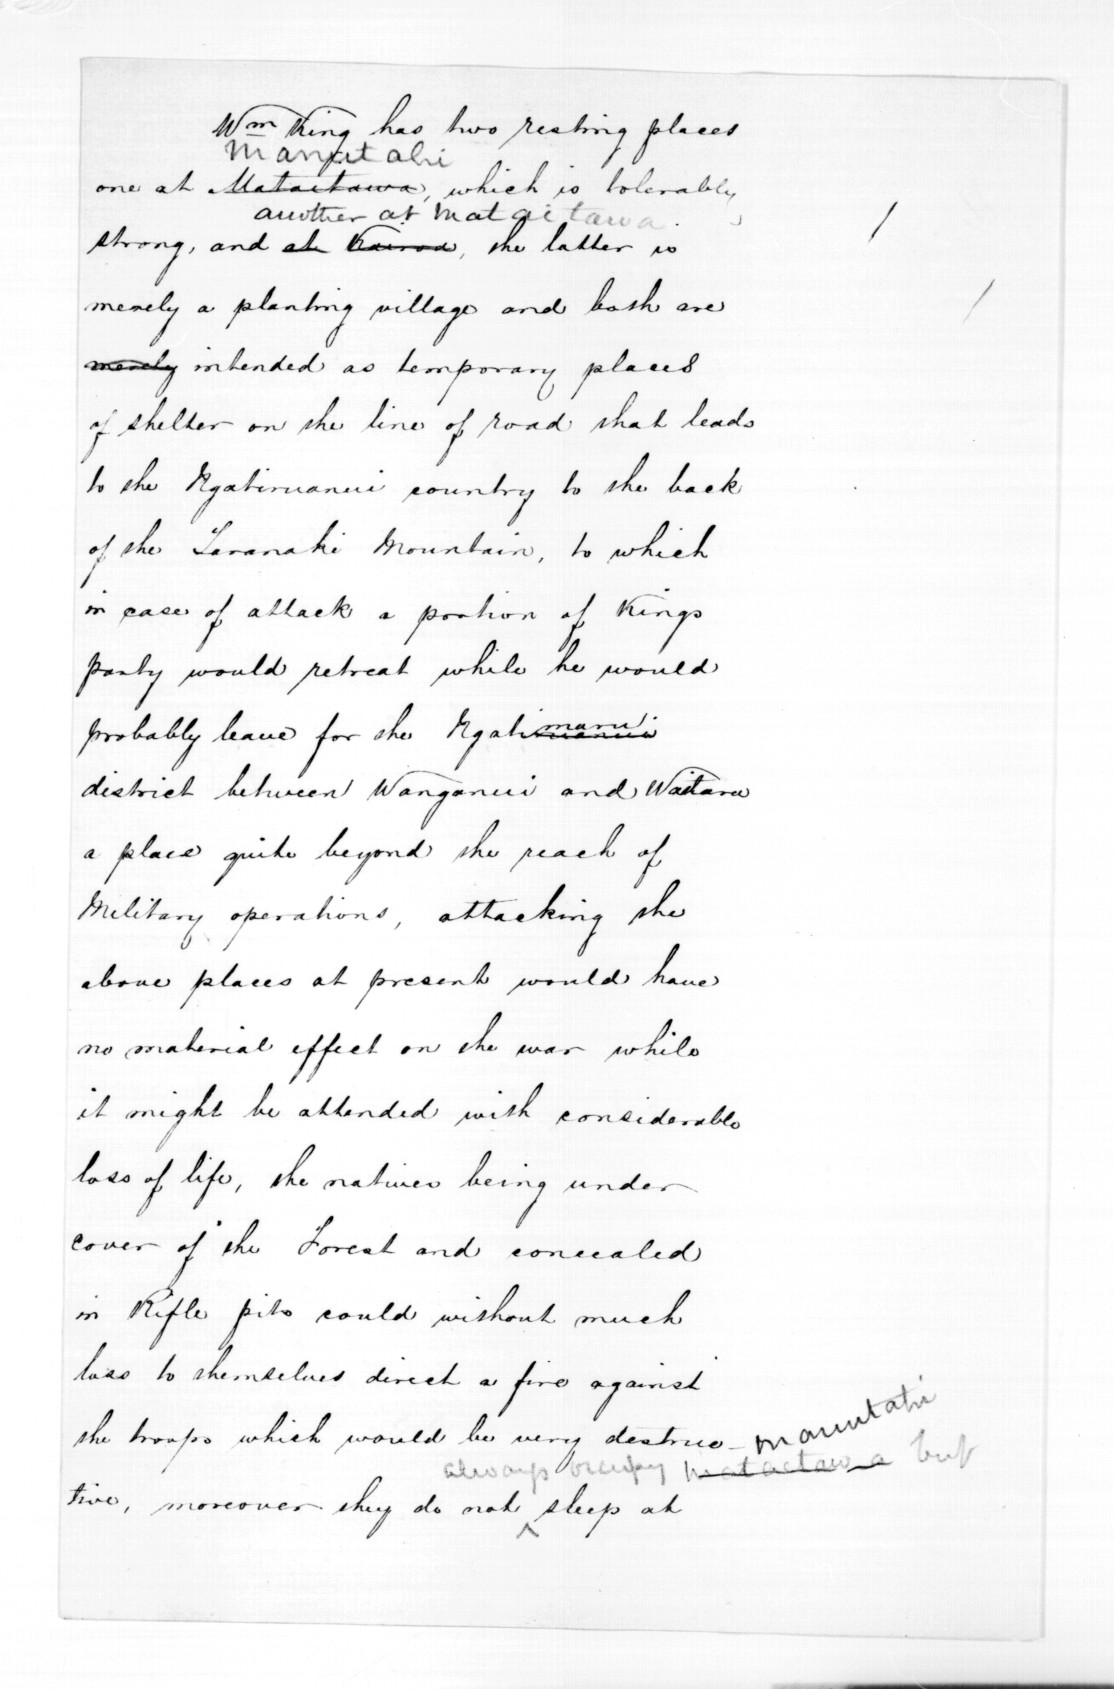 Wm King has two resting places
Manutahi
one at Mataitawa, which is tolerably
another at Mataitawa.
strong, and at Kairoa, the latter is
merely a planting village and both are
merely intended as temporary places
of shelter on the line of road that leads
to the Ngatiruanui country to the back
of the Taranaki Mountain, to which
in case of attack a portion of Kings
party would retreat while he would
maru
probably leave for the Ngatiruanui
district between Wanganui and Waitara
a place quite beyond the reach of
Military operations, attacking the
above places at present would have
no material effect on the war while
it might be attended with considerable
loss of life, the natives being under
cover of the Forest and concealed
in Rifle pits could without much
loss to themselves direct a fire against
the troops which would be very destruc-
Manutahi
always occupy Mataitawa but
tive, moreover they do not ^ sleep at